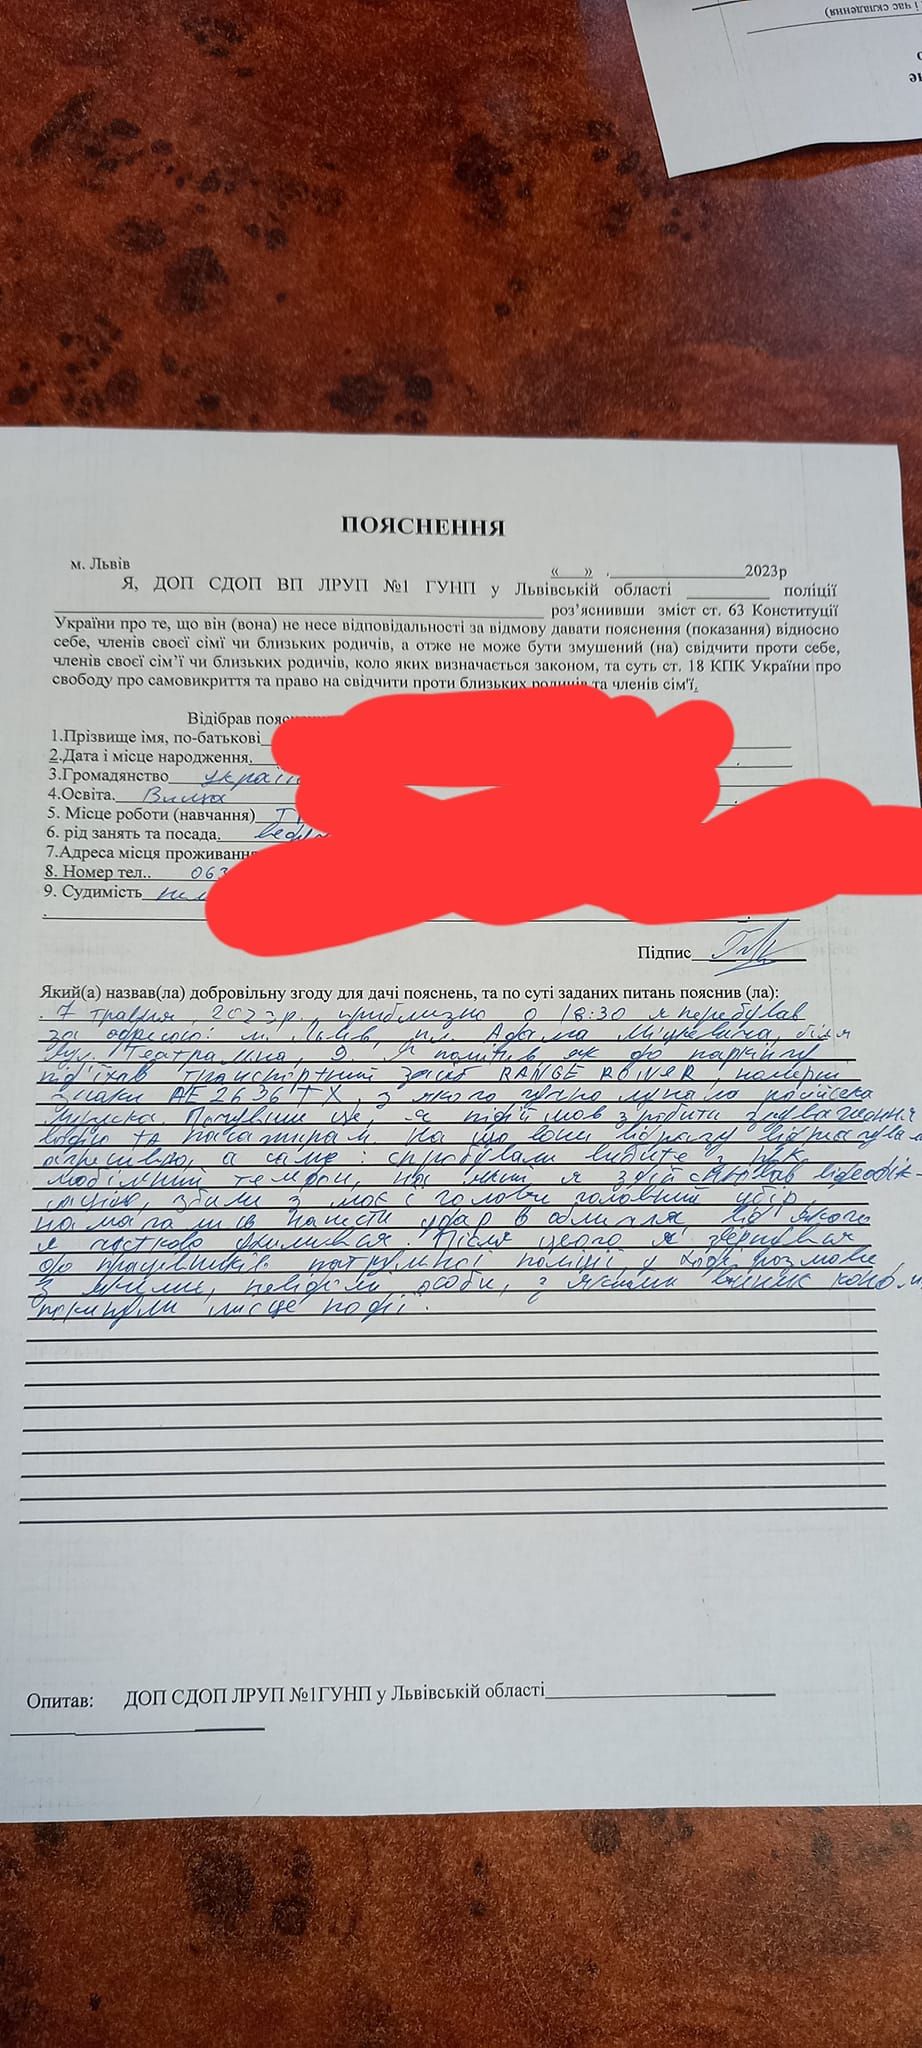 і час складення)
ПОЯСНЕННЯ
м. Львів «___» .____________2023р
Я, ДОП СДОП ВП ЛРУП №1 ГУНП у Львівській області ________ поліції
роз’яснивши зміст ст. 63 Конституції
України про те, що він (вона) не несе відповідальності за відмову давати пояснення (показання) відносно
себе, членів своєї сімї чи близьких родичів, а отже не може бути змушений (на) свідчити проти себе,
членів своєї сім’ї чи близьких родичів, коло яких визначається законом, та суть ст. 18 КПК України про
свободу про самовикриття та право на свідчити проти близьких родичів та членів сім'ї.
Відібрав
1.Прізвище імя, по-батькові
2.Дата і місце народження.
3.Громадянство
4.Освіта. Вища
5. Місце роботи (навчання)
6. рід занять та посада.
7.Адреса місця проживання
8. Номер тел.. 063
9. Судимість
Підпис
Який(а) назвав(ла) добровільну згоду для дачі пояснень, та по суті заданих питань пояснив (ла):
7 травня, 2023р. приблизно о 18:30 я перебував
за адресою: м. Львів, пл. Адама Міцкевича, біля
вул. Театральна, 9. Я помітив як до паркінгу
під'їхав транспортний засіб RANGE ROVER, номерні
знаки АЕ 2636 ТХ, з якого гучно лунала російська
музика. Почувши це, я підійшов зробити зауваження
водію та пасажирам на що вони відразу відреагували
агресивно, а саме: спробували вибити з рук
мобільний телефон, на який я здійснював відеофік-
сацію, збили з моєї голови головний убір,
намагались нанести удар в обличчя, від якого
я частково ухилився. Після цього я звернувся
до працівників патрульної поліції у ході розмови
з якими, невідомі особи, з якими виник
покинули місце події.
Опитав: ДОП СДОП ЛРУП №1ГУНП у Львівській області